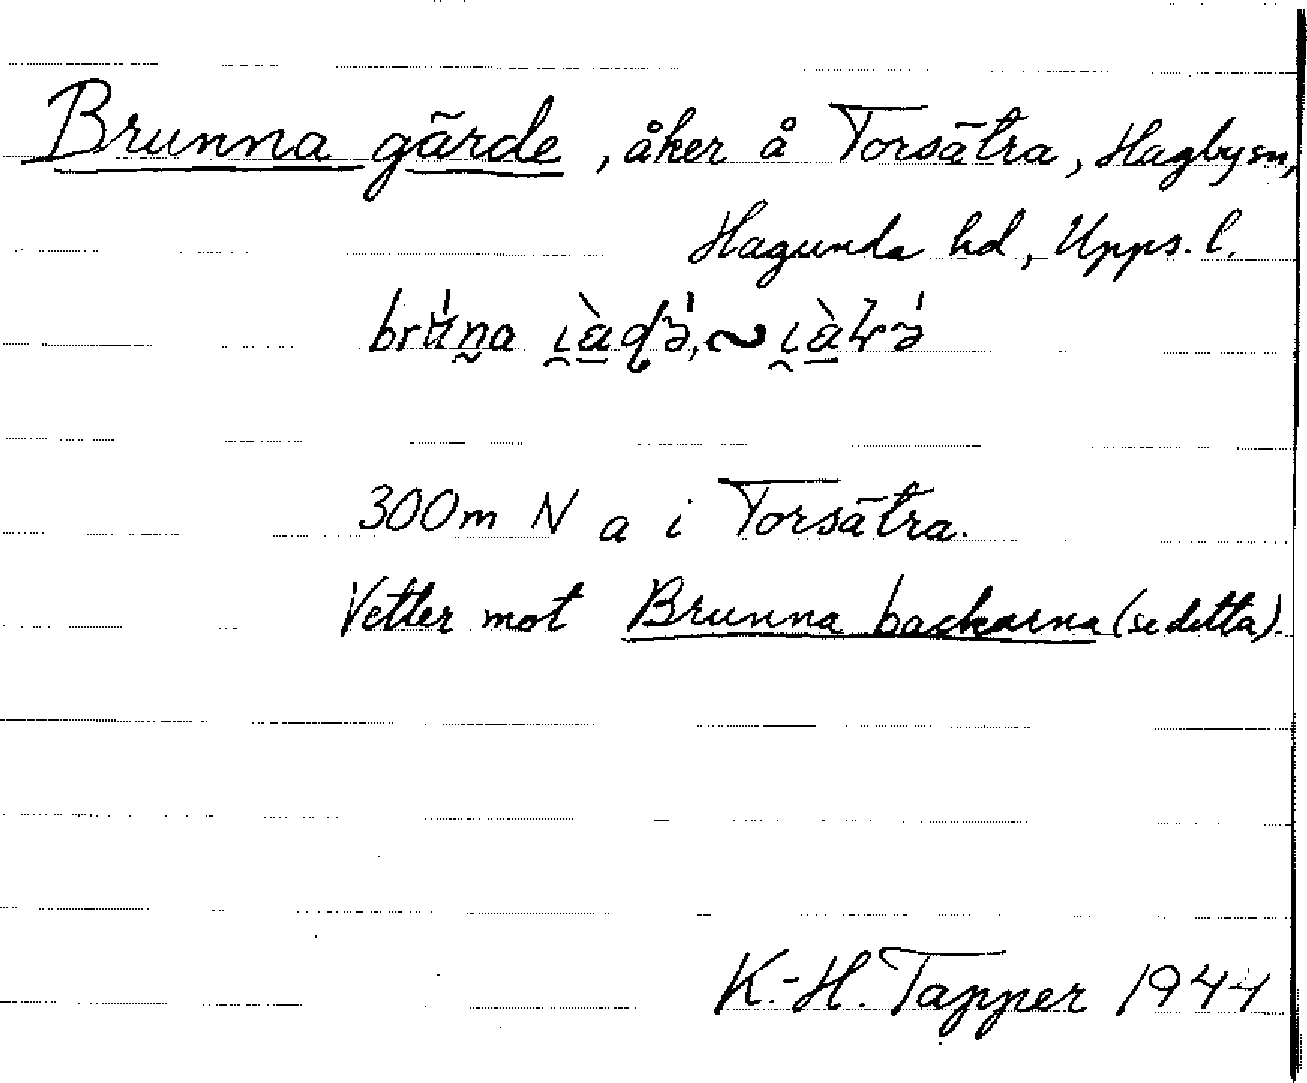 Brunna gärde, åker å Torsätra, Hagby sn,
Hagunda hd, Upps. l.
300 m N a i Torsätra.
Vetter mot Brunna backarna (se detta).
K.-H. Tapper 1944